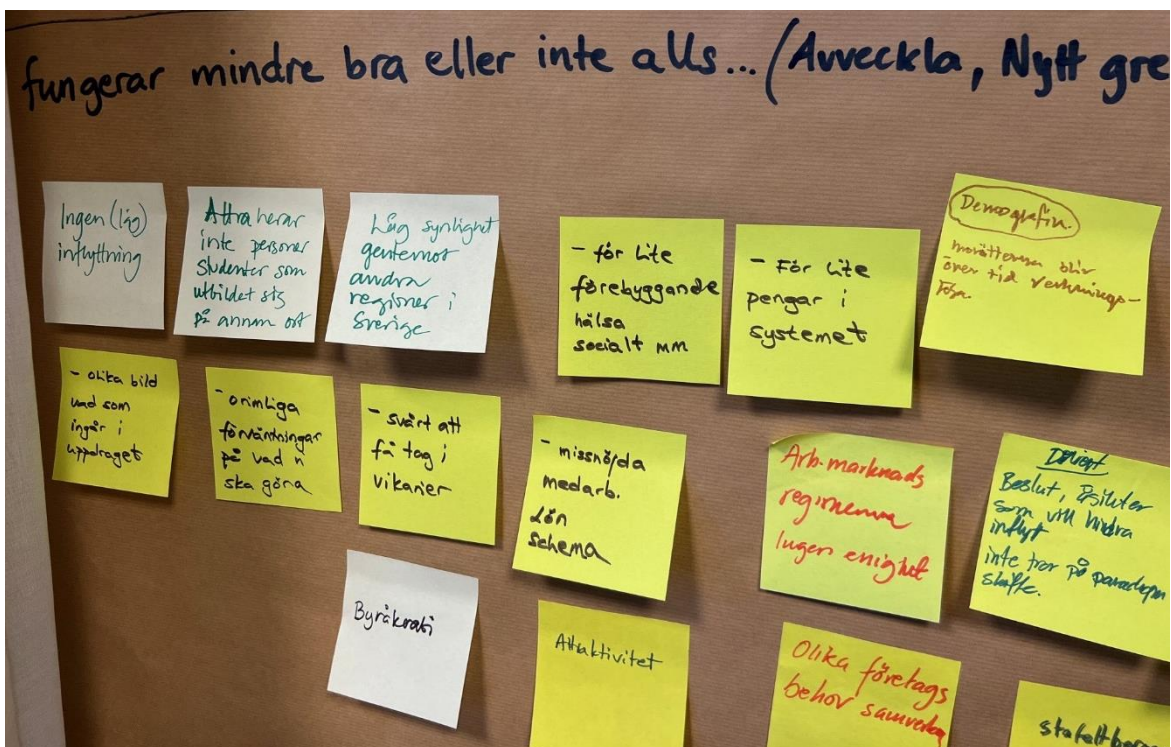 fungerar mindre bra eller inte alls... (Avveckla, Nytt gre
Ingen (låg)
inflyttning
Attraherar
inte personer
studenter som
utbildet sig
på annan ort
Låg synlighet
gentemot
andra
regioner i
Sverige
- för lite
förebyggande
hälsa
socialt mm
- För lite
pengar i
systemet
Demografin.
över tid verknings-
lösa.
- olika bild
vad som
ingår i
uppdraget
- orimliga
förväntningar
på vad n
ska göra
- svårt att
få tag i
vikarier
- missnöjda
medarb.
Lön
schema
Arb.marknads
regionerna
Ingen enighet
Beslut,
som vill hindra
inflyt
inte tror på paradigm
skifte.
Byråkrati
Attraktivitet
Olika företags
behov samverka